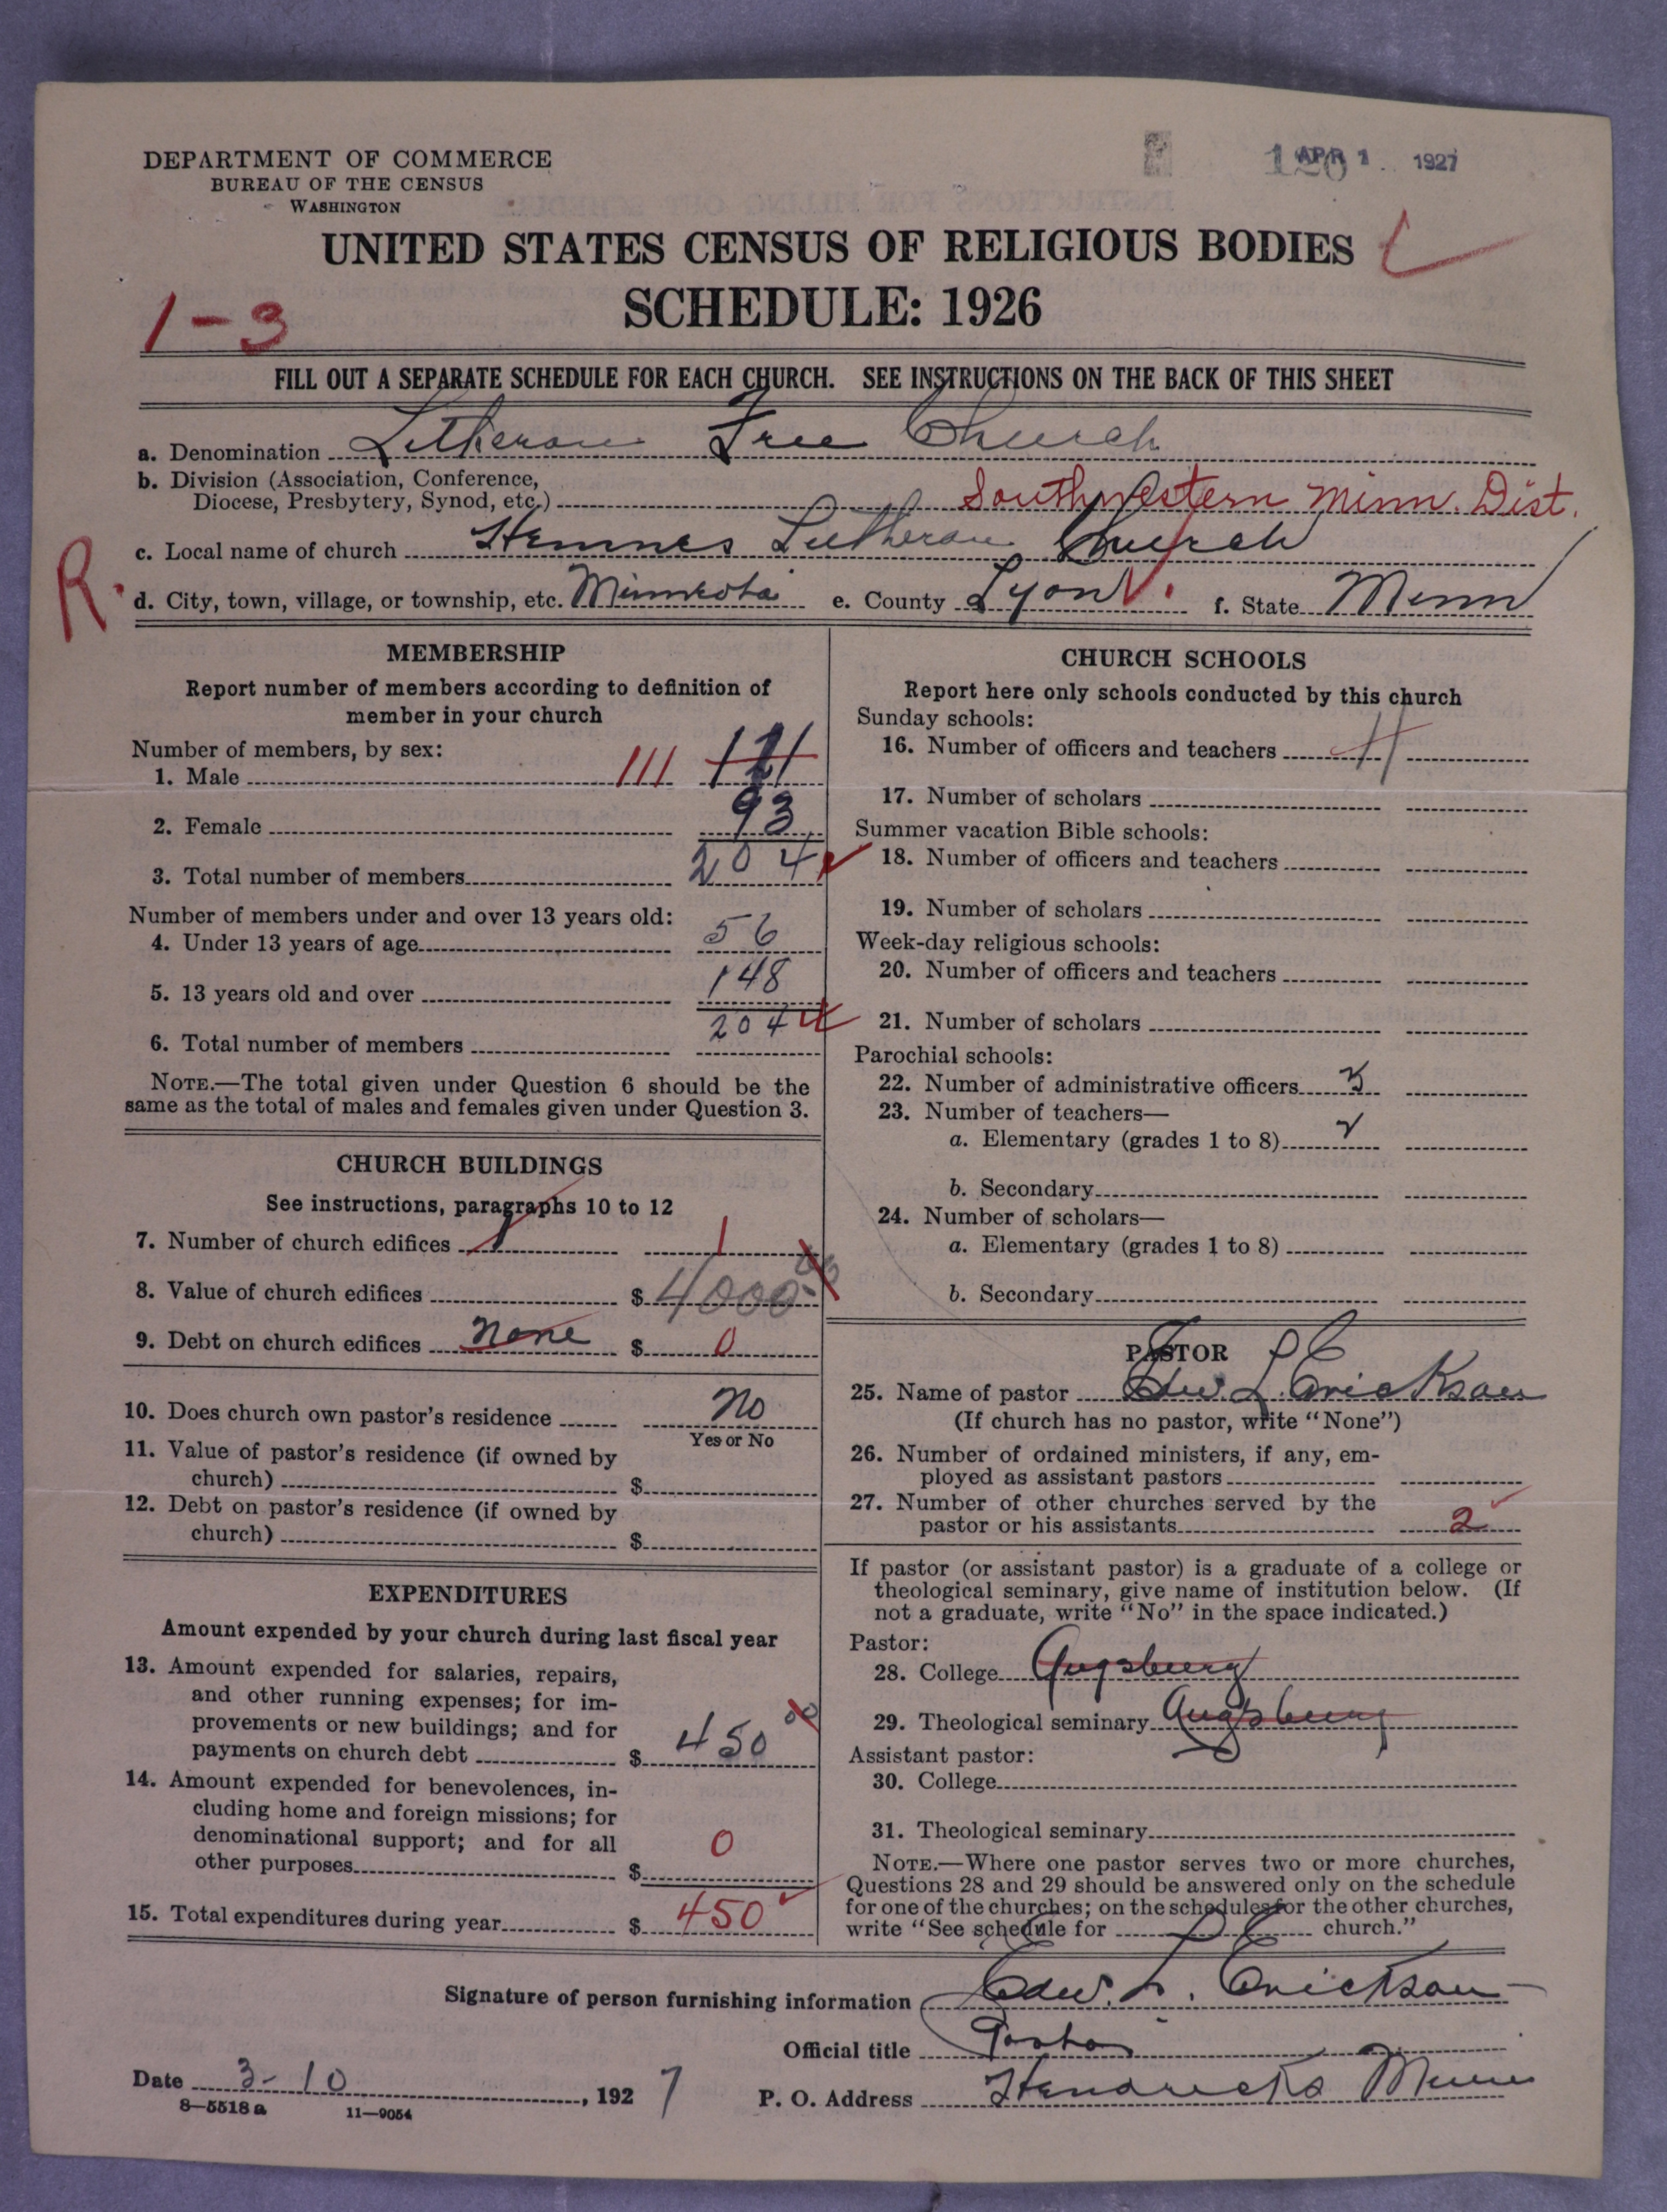 DEPARTMENT OF COMMERCE
BUREAU OF THE CENSUS
WASHINGTON
APR 1 1927
UNITED STATES CENSUS OF RELIGIOUS BODIES
SCHEDULE: 1926
1-3
FILL OUT A SEPARATE SCHEDULE FOR EACH CHURCH. SEE INSTRUCTIONS ON THE BACK OF THIS SHEET
a. Denomination Lutheran Free Church
b. Division (Association, Conference,
Diocese, Presbytery, Synod, etc.) Southwestern Minn. Dist.
c. Local name of church Hemnes Lutheran Church
R.
d. City, town, village, or township, etc. Minneota e. County Lyon f. State Minn
MEMBERSHIP
Report number of members according to definition of
member in your church
Number of members, by sex:
1. Male 111
2. Female 93
3. Total number of members 204
Number of members under and over 13 years old:
4. Under 13 years of age 56
5. 13 years old and over 148
6. Total number of members 204
NOTE.—The total given under Question 6 should be the
same as the total of males and females given under Question 3.
CHURCH BUILDINGS
See instructions, paragraphs 10 to 12
7. Number of church edifices 1 1
8. Value of church edifices $ 4000
9. Debt on church edifices none $ 0
10. Does church own pastor's residence No
Yes or No
11. Value of pastor's residence (if owned by
church) $
12. Debt on pastor's residence (if owned by
church) $
EXPENDITURES
Amount expended by your church during last fiscal year
13. Amount expended for salaries, repairs,
and other running expenses; for im-
provements or new buildings; and for
payments on church debt $ 450 00
14. Amount expended for benevolences, in-
cluding home and foreign missions; for
denominational support; and for all
other purposes $ 0
15. Total expenditures during year $ 450
CHURCH SCHOOLS
Report here only schools conducted by this church
Sunday schools:
16. Number of officers and teachers
17. Number of scholars
Summer vacation Bible schools:
18. Number of officers and teachers
19. Number of scholars
Week-day religious schools:
20. Number of officers and teachers
21. Number of scholars
Parochial schools:
22. Number of administrative officers
23. Number of teachers—
a. Elementary (grades 1 to 8)
b. Secondary
24. Number of scholars—
a. Elementary (grades 1 to 8)
b. Secondary
PASTOR
25. Name of pastor Edw. L. Erickson
(If church has no pastor, write "None")
26. Number of ordained ministers, if any, em-
ployed as assistant pastors
27. Number of other churches served by the
pastor or his assistants 2
If pastor (or assistant pastor) is a graduate of a college or
theological seminary, give name of institution below. (If
not a graduate, write "No" in the space indicated.)
Pastor:
28. College Augsburg
29. Theological seminary Augsburg
Assistant pastor:
30. College
31. Theological seminary
NOTE.—Where one pastor serves two or more churches,
Questions 28 and 29 should be answered only on the schedule
for one of the churches; on the schedules for the other churches,
write "See schedule for church."
Signature of person furnishing information Edw. L. Erickson
Official title Pastor
Date 3-10, 1927 P. O. Address Hendricks Minn
8—5518 a 11—9054